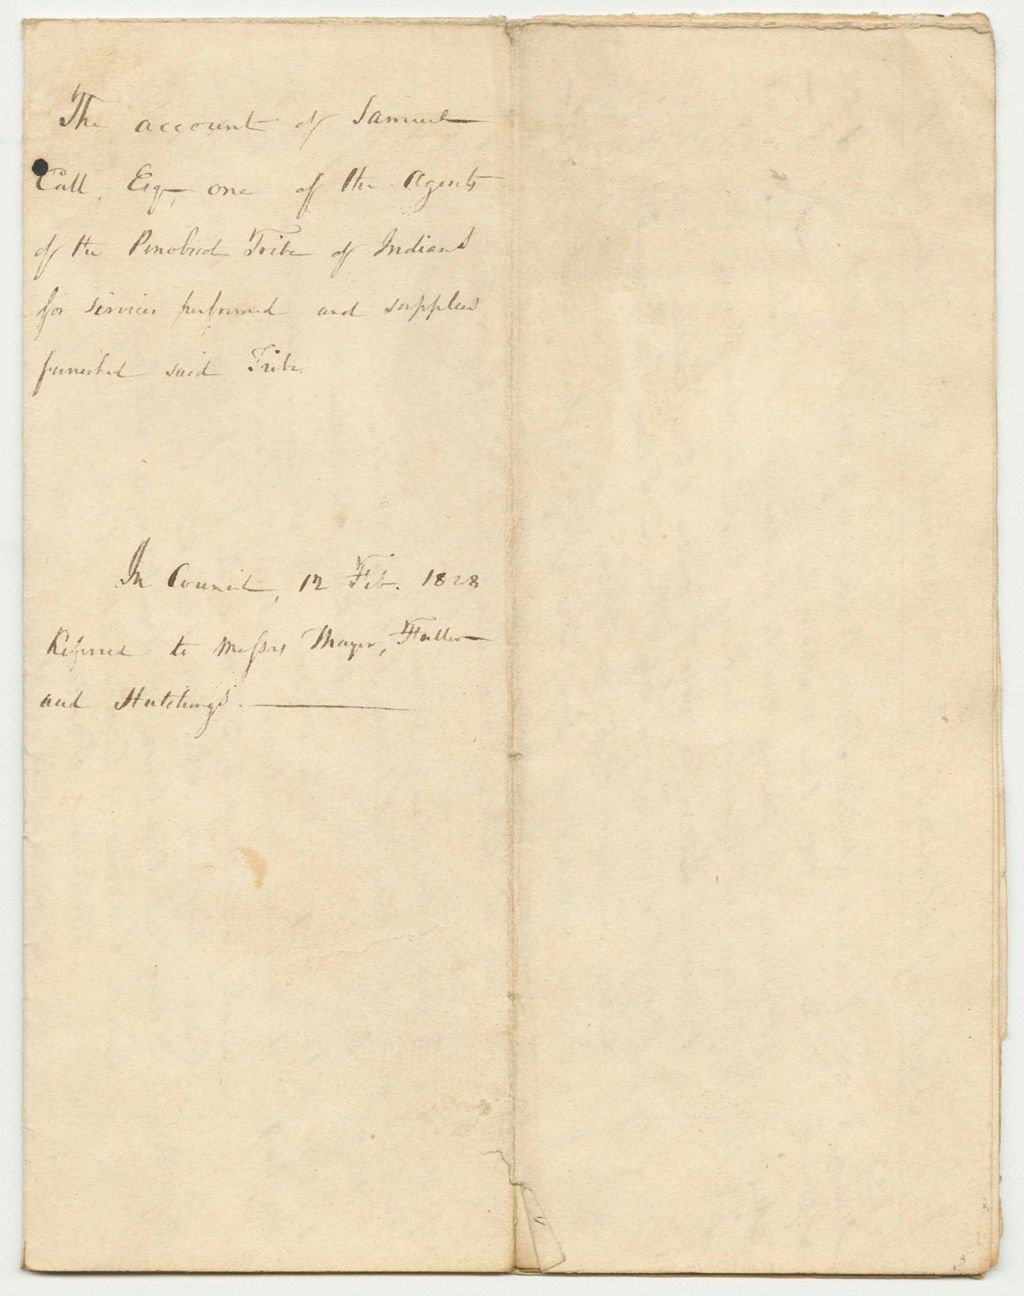 The account of Samuel
Call, Esq, one of the Agents
of the Penobscot Tribe of Indians
for services performed and supplies
furnished said Tribe.
In Council, 12 Feb. 1828
Referred to Messrs Thayer, Fuller
and Hutchings.